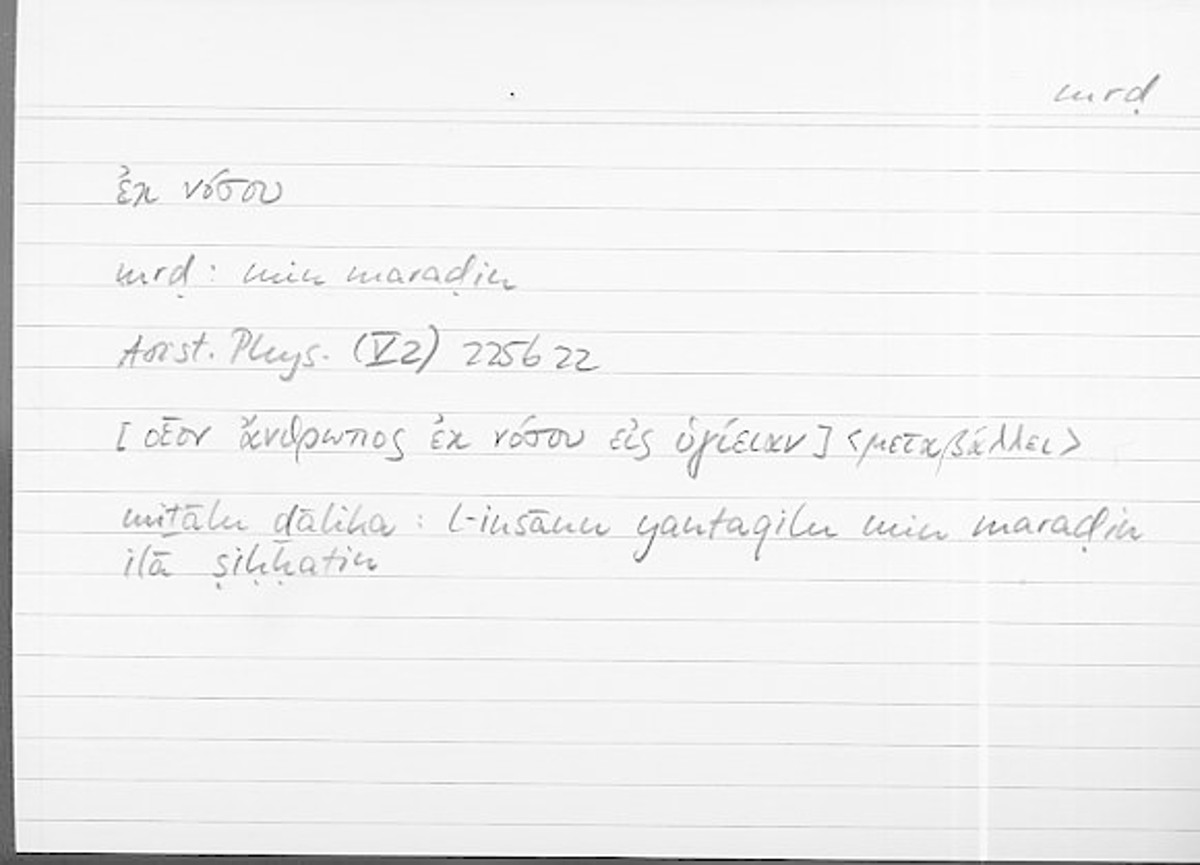 mrḍ
ἐκ νόσου
mrḍ: min maraḍin
Arist. Phys. (V2) 225b22
[οἷον ἄνθρωπος ἐκ νόσου εἰς ὑγίειαν] <μεταβάλλει>
miṯālu ḏālika: l-insānu yantaqilu min maraḍin
ilā ṣiḥḥatin